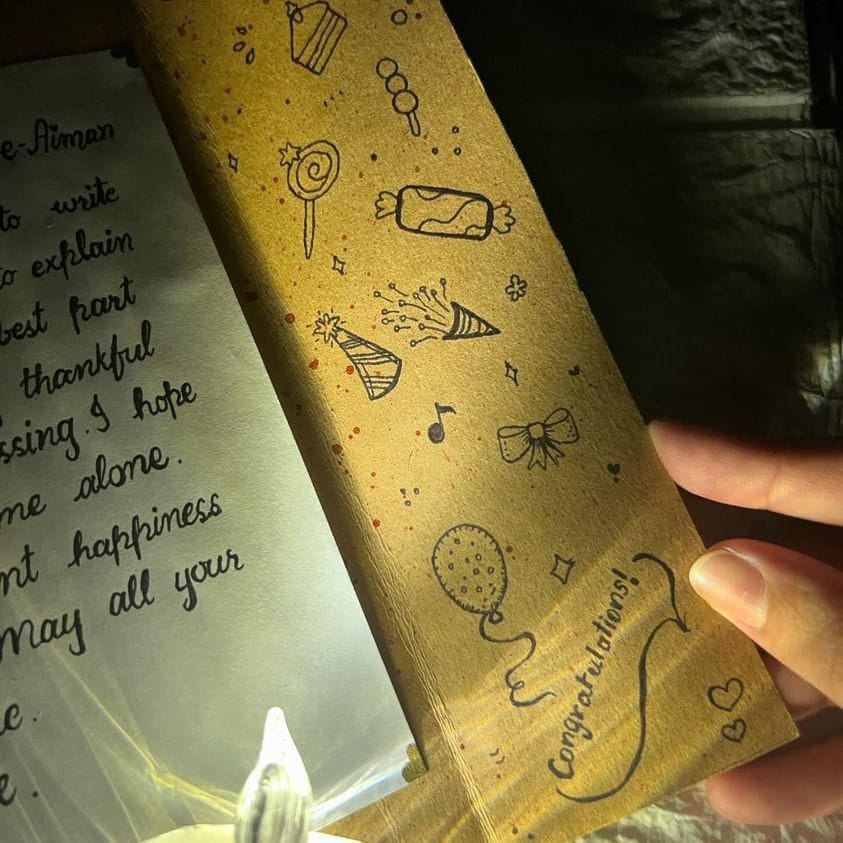 e-Aiman
to write
to explain
best part
thankful
ssing. I hope
me alone.
nt happiness
May all your
e.
e.
Congratulations!